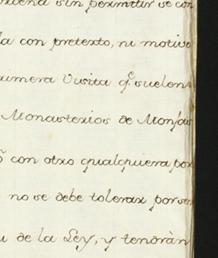 sin permitir se con
la con pretexto, ni motivo
umera Visita q.e suelen
Monasterios de Monjas
con otro qualquiera por
no se debe tolerar por
de la Ley, y tendràn